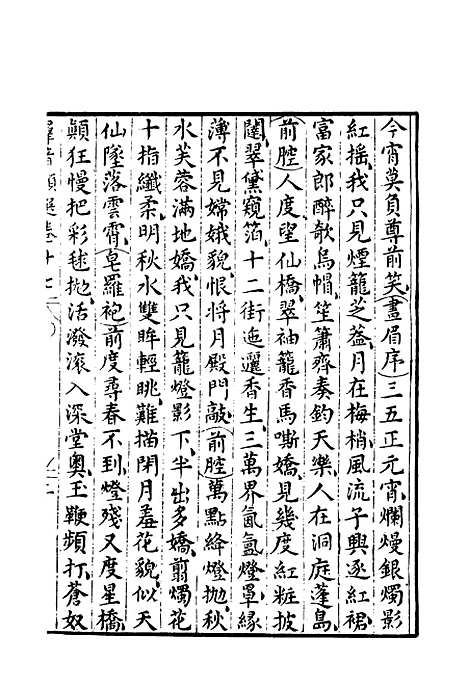 今宵莫負尊前笑畫眉序三五正元宵爛熳銀燭影
紅搖我只見煙籠芝葢月在梅梢風流子興逐紅裙
富家郎醉欹烏帽笙簫齊奏鈞天樂人在洞庭蓬島
前腔人度望仙橋翠袖籠香馬嘶嬌見幾度紅粧披
闥翠黛窺箔十二街迤邐香生三萬界氤氳燈罩緣
薄不見嫦娥貌恨將月殿門敲前腔萬點絳燈拋秋
水芙蓉滿地嬌我只見籠燈影下半出多嬌翦燭花
十指纖柔明秋水雙眸輕眺難描閉月羞花貌似天
仙墜落雲霄皂羅袍前度尋春不到燈殘又度星橋
顛狂慢把彩毬拋活潑滾入深堂奧玉鞭頻打蒼奴
羣音類選卷十七